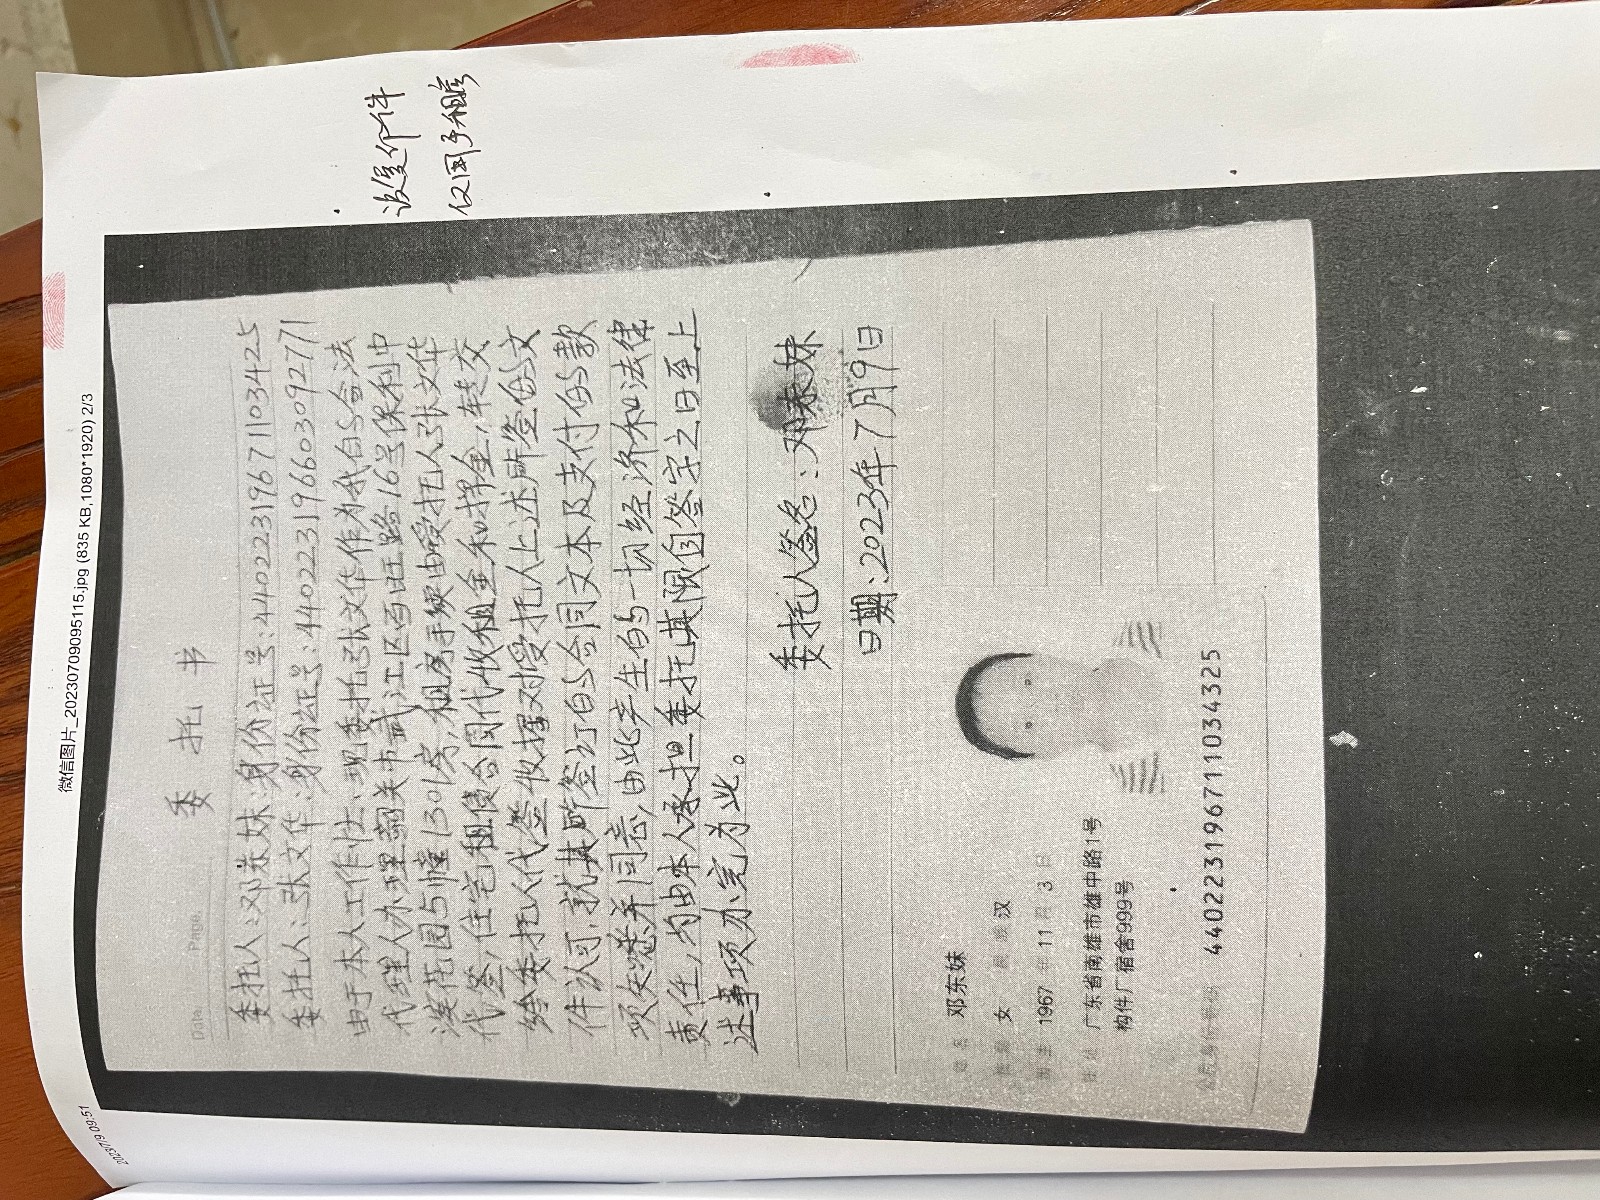 微信图片_20230709095115.jpg (835 KB,1080*1920) 2/3
2023/7/9 09:51
该复印件
仅用于租房
Date. Page.
委托书
委托人:邓东妹.身份证号:440223196711034325
委托人:张文华.身份证号:440223196603092771
由于本人工作忙.现委托张文作为我的合法
代理人办理韶关市武江区百旺路16号保利中
滨花园5幢1301房,租房手续由受托人张文华
代签,住宅租赁合同代收租金和押金,转交
给委托人代签收据对受托人上述所签的文
件认可.就其所签订的合同文本及支付的款
项知悉并同意,由此产生的一切经济和法律
责任,均由本人承担委托其限自签字之日至上
述事项办完为止。
委托人签名:邓东妹
日期:2023年7月9日
姓名 邓东妹
性别 女 民族 汉
出生 1967 年 11 月 3 日
住址 广东省南雄市雄中路1号
构件厂宿舍999号
公民身份号码 440223196711034325